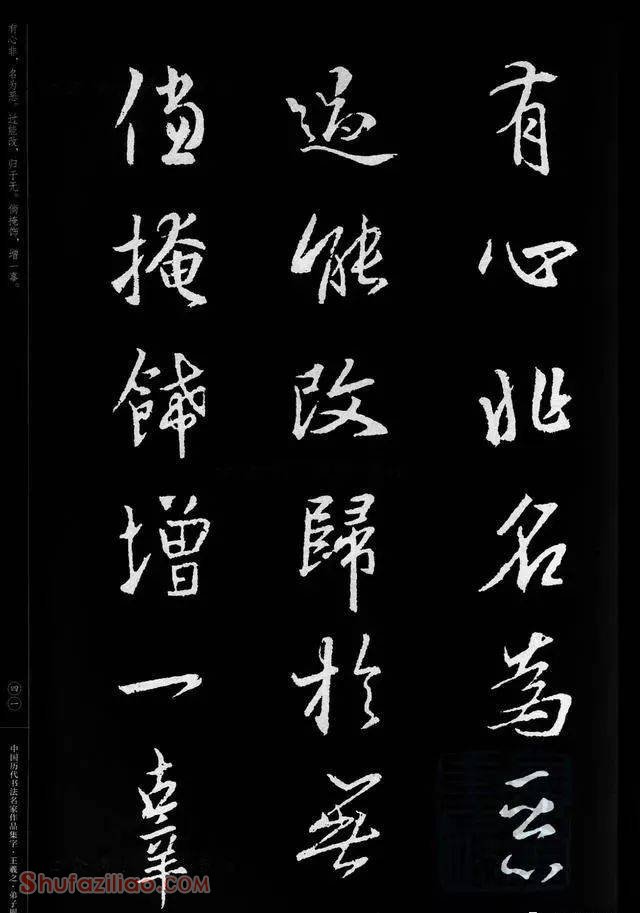 有心非名為惡
過能改歸於無
倘掩飾增一辜
有心非，名为恶。过能改，归于无。倘掩饰，增一辜。
四一
中国历代书法名家作品集字·王羲之·弟子规
Shufaziliao.com